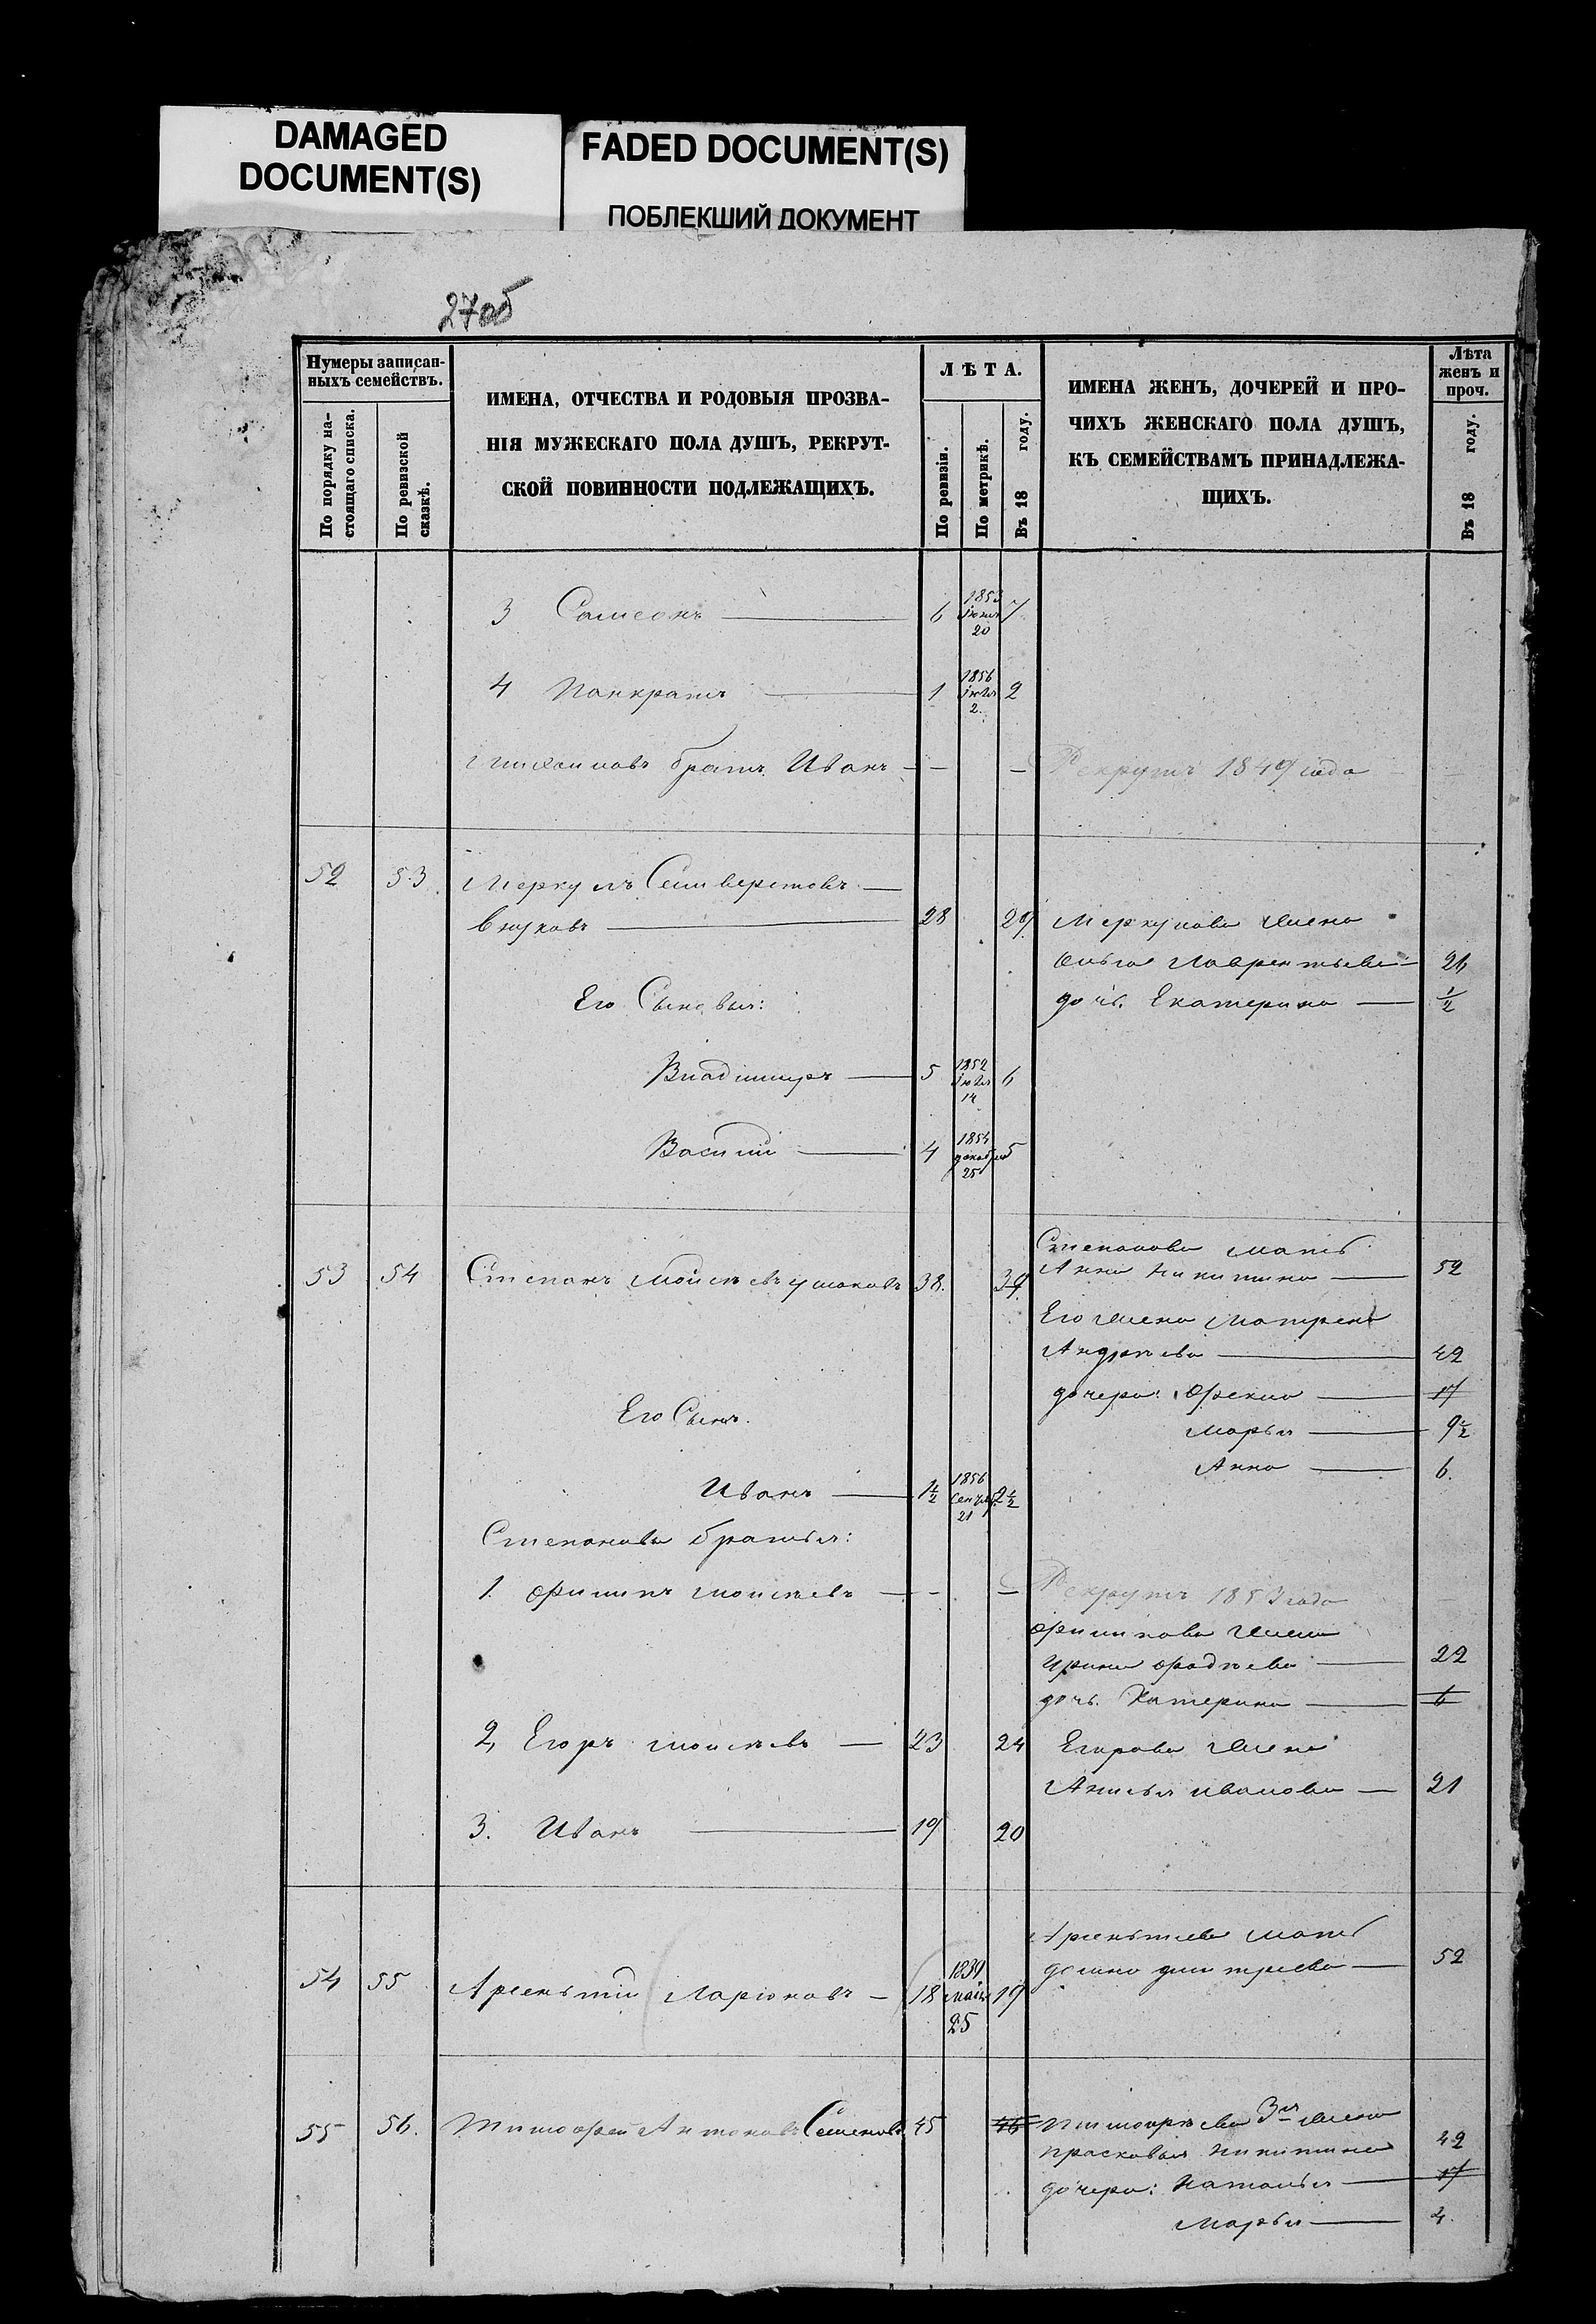 DAMAGED
DOCUMENT(S)
FADED DOCUMENT(S)
ПОБЛЕКШИЙ ДОКУМЕНТ
27об
Нумеры записан-
ныхъ семействъ.
По порядку на-
стоящаго списка.
По ревизской
сказкѣ.
ИМЕНА, ОТЧЕСТВА И РОДОВЫЯ ПРОЗВА-
НІЯ МУЖЕСКАГО ПОЛА ДУШЪ, РЕКРУТ-
СКОЙ ПОВИННОСТИ ПОДЛЕЖАЩИХЪ.
ЛѢТА.
По ревизіи.
По метрикѣ.
Въ 18 году.
ИМЕНА ЖЕНЪ, ДОЧЕРЕЙ И ПРО-
ЧИХЪ ЖЕНСКАГО ПОЛА ДУШЪ,
КЪ СЕМЕЙСТВАМЪ ПРИНАДЛЕЖА-
ЩИХЪ.
Лѣта
женъ и
проч.
Въ 18 году.
3 Самсонъ — 6 1853 20 7
4 Панкратъ — 1 1856 іюля 2 2
братъ Иванъ — — — Рекрутъ 1849 года
52 53 Меркулъ Селиверстовъ —
Внуковъ — 28 29 Меркулова жена
Ольга Лаврентьева — 26
Его Сыновья: дочь Екатерина — 1/2
Владимиръ — 5 1852 іюля 14 6
Василій — 4 1854 декабря 25 5
Степанова мать
53 54 Степанъ Моисѣевъ Ушаковъ 38. 39 Анна Никитина — 52
Его жена Матрена
Андрѣева — 42
дочери: Фекла — 17
Его Сынъ. Марья — 9 1/2
Анна — 6.
Иванъ — 1 1/2 1856 21 2 1/2
Степановы братья:
1. Филипъ Моисѣевъ — — — Рекрутъ 1853 года
Филипова жена
Ирина Фадѣева — 22
дочь Катерина — 6
2, Егоръ Моисѣевъ — 23 24 Егорова жена
Анисья Иванова — 21
3. Иванъ — 19 20
Арсентьева мать
54 55 Арсентій Ларіоновъ — 18 1839 мая 25 19 Домна Дмитріева — 52
55 56. Тимофей Антоновъ Семеновъ 45 46 Тимофѣева 3я жена
Прасковья Никитина 42
дочери: Наталья — 17
Марья — 4.